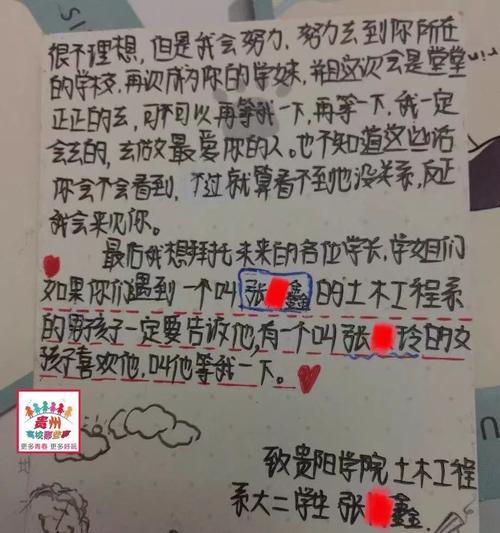 很不理想，但是我会努力，努力去到你所在
的学校，再次成为你的学妹，并且这次会是堂堂
正正的去，可不可以再等我一下，再等一下，我一定
会去的，去做最爱你的人。也不知道这些话
你会不会看到，不过就算看不到也没关系，反正
我会来见你。
最后我想拜托未来的各位学长，学姐们
如果你们遇到一个叫张鑫的土木工程系
的男孩子一定要告诉他，有一个叫张玲的女
孩子喜欢他，叫他等我一下。
贵州
高校那些事
更多青春 更多好玩
致贵阳学院土木工程
系大二学生张鑫